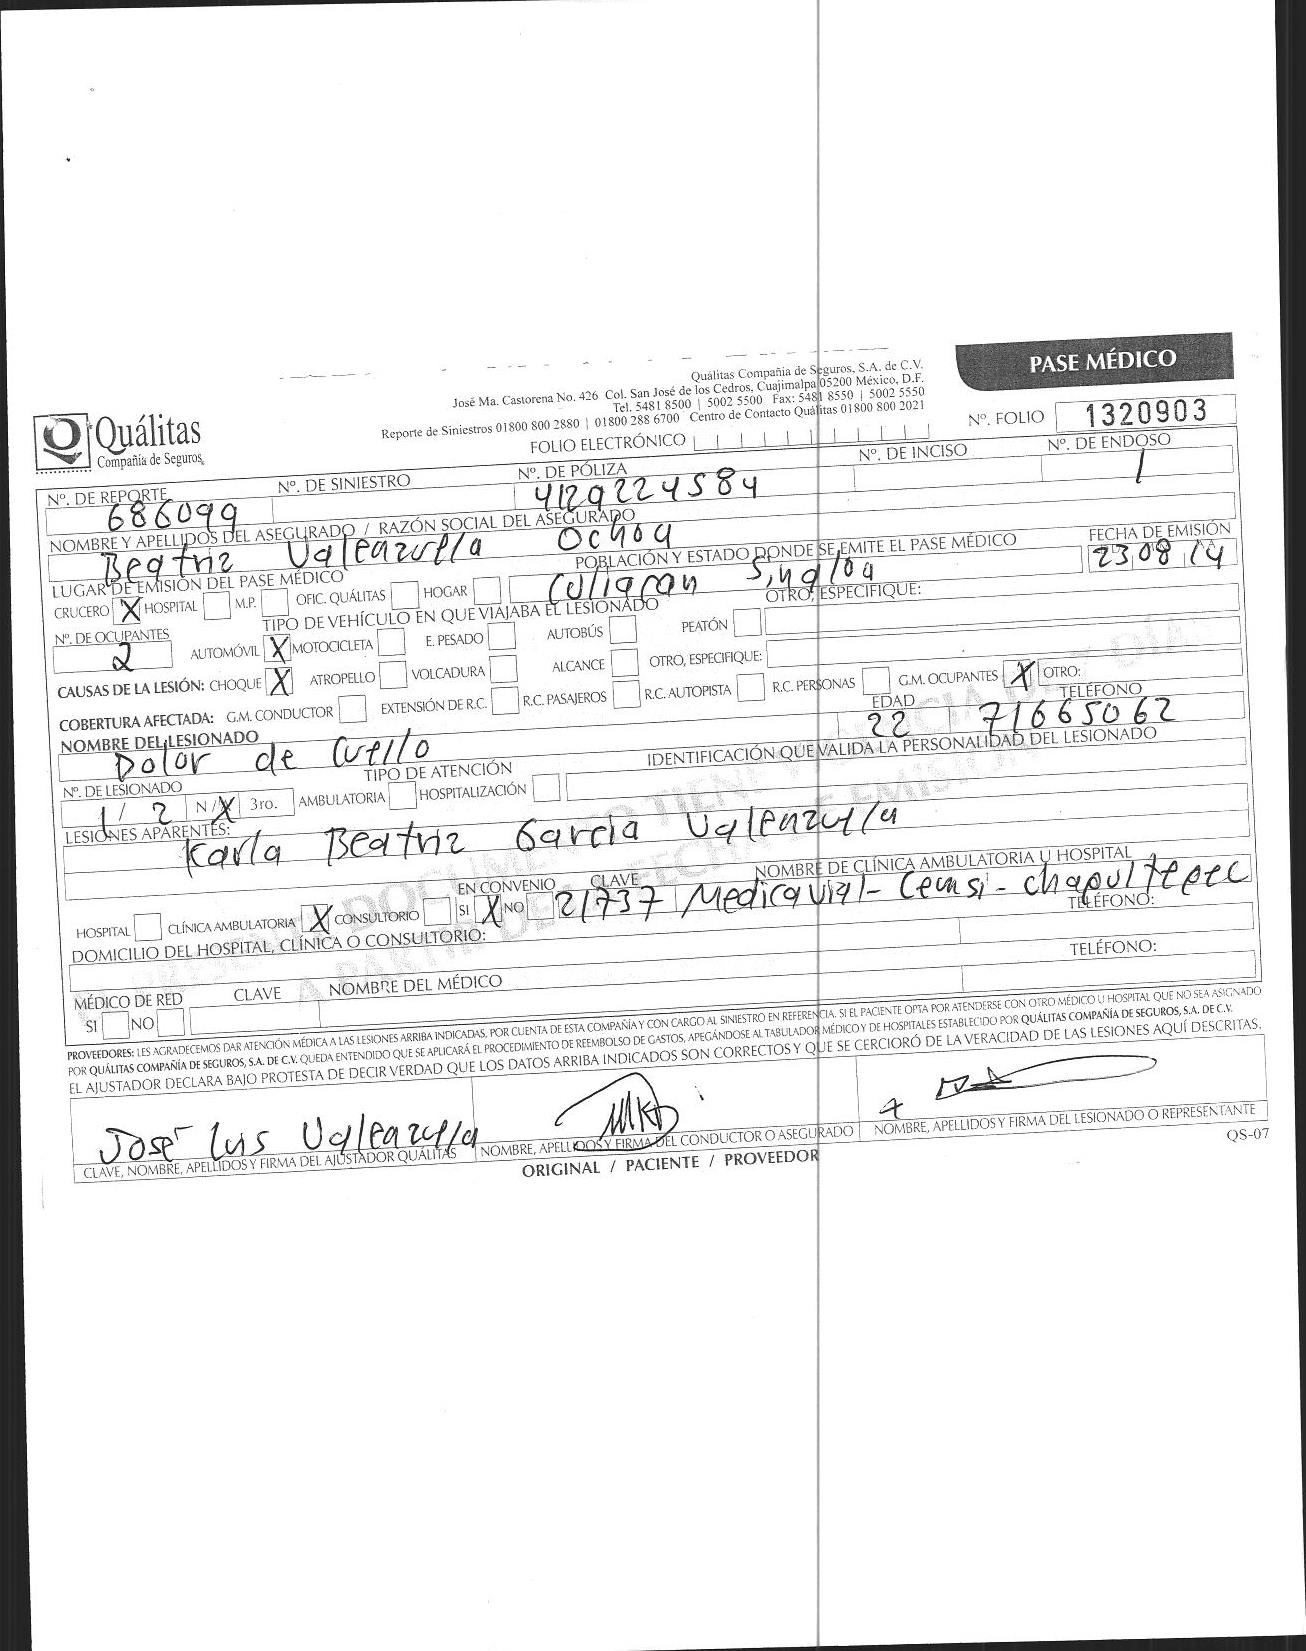 Quálitas Compañía de Seguros, S.A. de C.V.
José Ma. Castorena No. 426 Col. San José de los Cedros, Cuajimalpa 05200 México, D.F.
Tel. 5481 8500 | 5002 5500 Fax: 5481 8550 | 5002 5550
Reporte de Siniestros 01800 800 2880 | 01800 288 6700 Centro de Contacto Quálitas 01800 800 2021
PASE MÉDICO
Quálitas
Compañía de Seguros
FOLIO ELECTRÓNICO
Nº. FOLIO 1320903
Nº. DE REPORTE Nº. DE SINIESTRO Nº. DE PÓLIZA Nº. DE INCISO Nº. DE ENDOSO
686099 4129224584 1
NOMBRE Y APELLIDOS DEL ASEGURADO / RAZÓN SOCIAL DEL ASEGURADO
Beatriz Valenzuella Ochoa
LUGAR DE EMISIÓN DEL PASE MÉDICO POBLACIÓN Y ESTADO DONDE SE EMITE EL PASE MÉDICO FECHA DE EMISIÓN
CRUCERO X HOSPITAL M.P. OFIC. QUÁLITAS HOGAR Culiacan Sinaloa 23 08 14
Nº. DE OCUPANTES TIPO DE VEHÍCULO EN QUE VIAJABA EL LESIONADO OTRO, ESPECIFIQUE:
2 AUTOMÓVIL X MOTOCICLETA E. PESADO AUTOBÚS PEATÓN
CAUSAS DE LA LESIÓN: CHOQUE X ATROPELLO VOLCADURA ALCANCE OTRO, ESPECIFIQUE:
COBERTURA AFECTADA: G.M. CONDUCTOR EXTENSIÓN DE R.C. R.C. PASAJEROS R.C. AUTOPISTA R.C. PERSONAS G.M. OCUPANTES X OTRO:
NOMBRE DEL LESIONADO EDAD TELÉFONO
Dolor de Cuello 22 71665062
Nº. DE LESIONADO TIPO DE ATENCIÓN IDENTIFICACIÓN QUE VALIDA LA PERSONALIDAD DEL LESIONADO
1 / 2 N/X 3ro. AMBULATORIA HOSPITALIZACIÓN
LESIONES APARENTES:
Karla Beatriz Garcia Valenzuella
EN CONVENIO CLAVE NOMBRE DE CLÍNICA AMBULATORIA U HOSPITAL
HOSPITAL CLÍNICA AMBULATORIA X CONSULTORIO SI X NO 21737 Medicavial - Cemsi - Chapultepec
DOMICILIO DEL HOSPITAL, CLÍNICA O CONSULTORIO: TELÉFONO:
MÉDICO DE RED CLAVE NOMBRE DEL MÉDICO TELÉFONO:
SI NO
PROVEEDORES: LES AGRADECEMOS DAR ATENCIÓN MÉDICA A LAS LESIONES ARRIBA INDICADAS, POR CUENTA DE ESTA COMPAÑÍA Y CON CARGO AL SINIESTRO EN REFERENCIA. SI EL PACIENTE OPTA POR ATENDERSE CON OTRO MÉDICO U HOSPITAL QUE NO SEA ASIGNADO
POR QUÁLITAS COMPAÑÍA DE SEGUROS, S.A. DE C.V. QUEDA ENTENDIDO QUE SE APLICARÁ EL PROCEDIMIENTO DE REEMBOLSO DE GASTOS, APEGÁNDOSE AL TABULADOR MÉDICO Y DE HOSPITALES ESTABLECIDO POR QUÁLITAS COMPAÑÍA DE SEGUROS, S.A. DE C.V.
EL AJUSTADOR DECLARA BAJO PROTESTA DE DECIR VERDAD QUE LOS DATOS ARRIBA INDICADOS SON CORRECTOS Y QUE SE CERCIORÓ DE LA VERACIDAD DE LAS LESIONES AQUÍ DESCRITAS.
José Luis Valenzuella
CLAVE, NOMBRE, APELLIDOS Y FIRMA DEL AJUSTADOR QUÁLITAS NOMBRE, APELLIDOS Y FIRMA DEL CONDUCTOR O ASEGURADO NOMBRE, APELLIDOS Y FIRMA DEL LESIONADO O REPRESENTANTE
ORIGINAL / PACIENTE / PROVEEDOR
QS-07